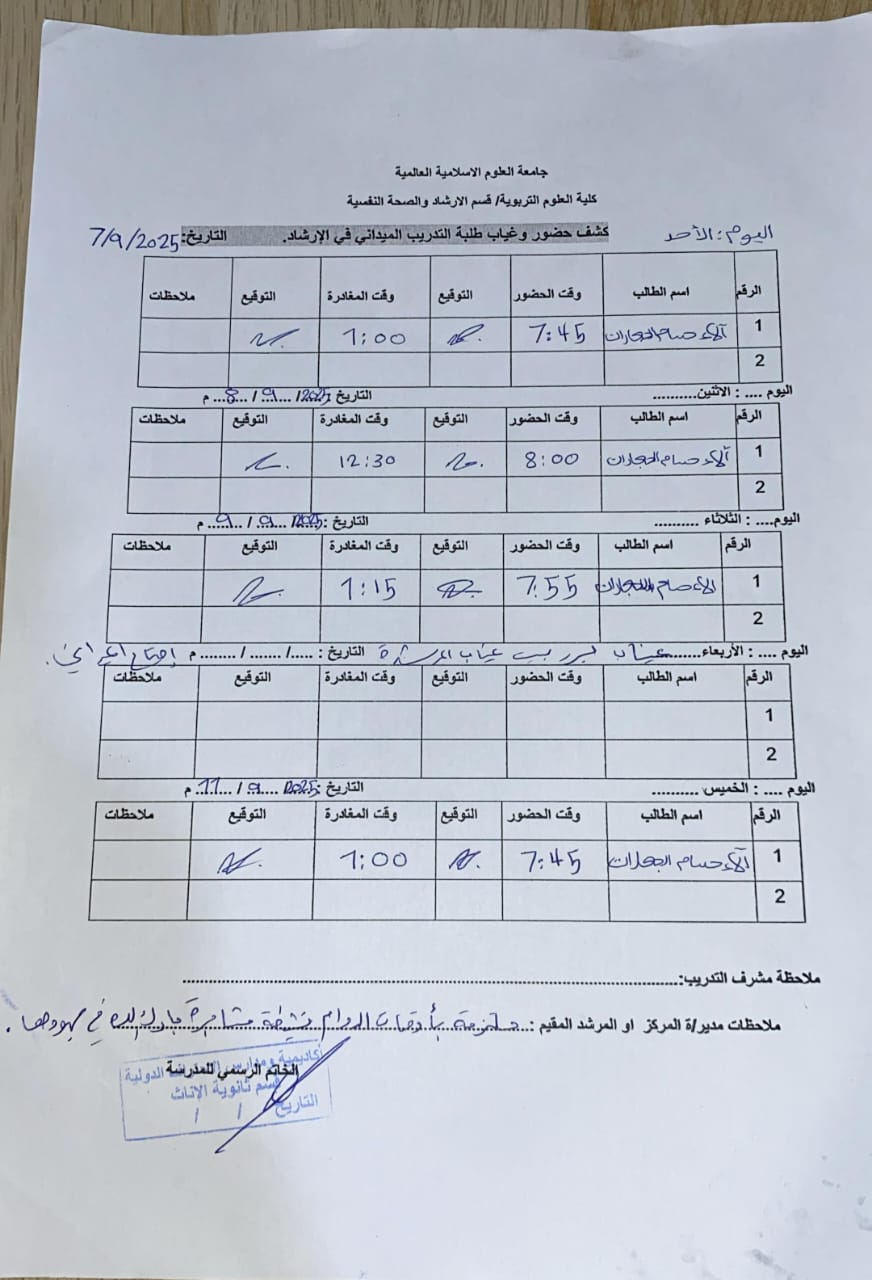 جامعة العلوم الاسلامية العالمية
كلية العلوم التربوية/ قسم الارشاد والصحة النفسية
اليوم: الأحد كشف حضور وغياب طلبة التدريب الميداني في الإرشاد. التاريخ: 7/9/2025
الرقم اسم الطالب وقت الحضور التوقيع وقت المغادرة التوقيع ملاحظات
1 آلاء حسام 7:45 1:00
2
اليوم .... : الاثنين........... التاريخ 2025/ 9 / 8 م
الرقم اسم الطالب وقت الحضور التوقيع وقت المغادرة التوقيع ملاحظات
1 آلاء حسام 8:00 12:30
2
اليوم.... : الثلاثاء .......... التاريخ : 2025/ 9 / 9 م
الرقم اسم الطالب وقت الحضور التوقيع وقت المغادرة التوقيع ملاحظات
1 آلاء حسام 7:55 1:15
2
اليوم .... : الأربعاء....... غياب غياب المرشدة التاريخ : ...../ ......./ ........ م
الرقم اسم الطالب وقت الحضور التوقيع وقت المغادرة التوقيع ملاحظات
1
2
اليوم .... : الخميس .......... التاريخ : 2025/ 9 / 11 م
الرقم اسم الطالب وقت الحضور التوقيع وقت المغادرة التوقيع ملاحظات
1 آلاء حسام 7:45 1:00
2
ملاحظة مشرف التدريب:........................
ملاحظات مدير/ة المركز او المرشد المقيم : ملتزمة بأوقات الدوام نشيطة مثابرة بارك الله في جهودها.
أكاديمية ومدارس الدولية
الخاتم الرسمي للمدرسة
قسم ثانوية الاناث
التاريخ / /